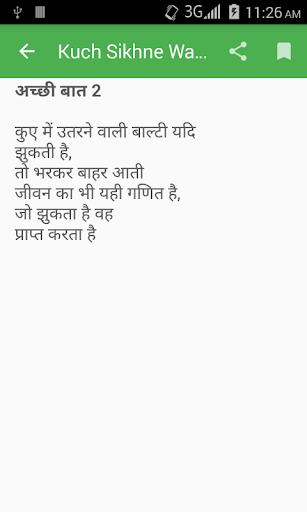 3G 11:26 AM
Kuch Sikhne Wa...
अच्छी बात 2
कुए में उतरने वाली बाल्टी यदि
झुकती है,
तो भरकर बाहर आती
जीवन का भी यही गणित है,
जो झुकता है वह
प्राप्त करता है